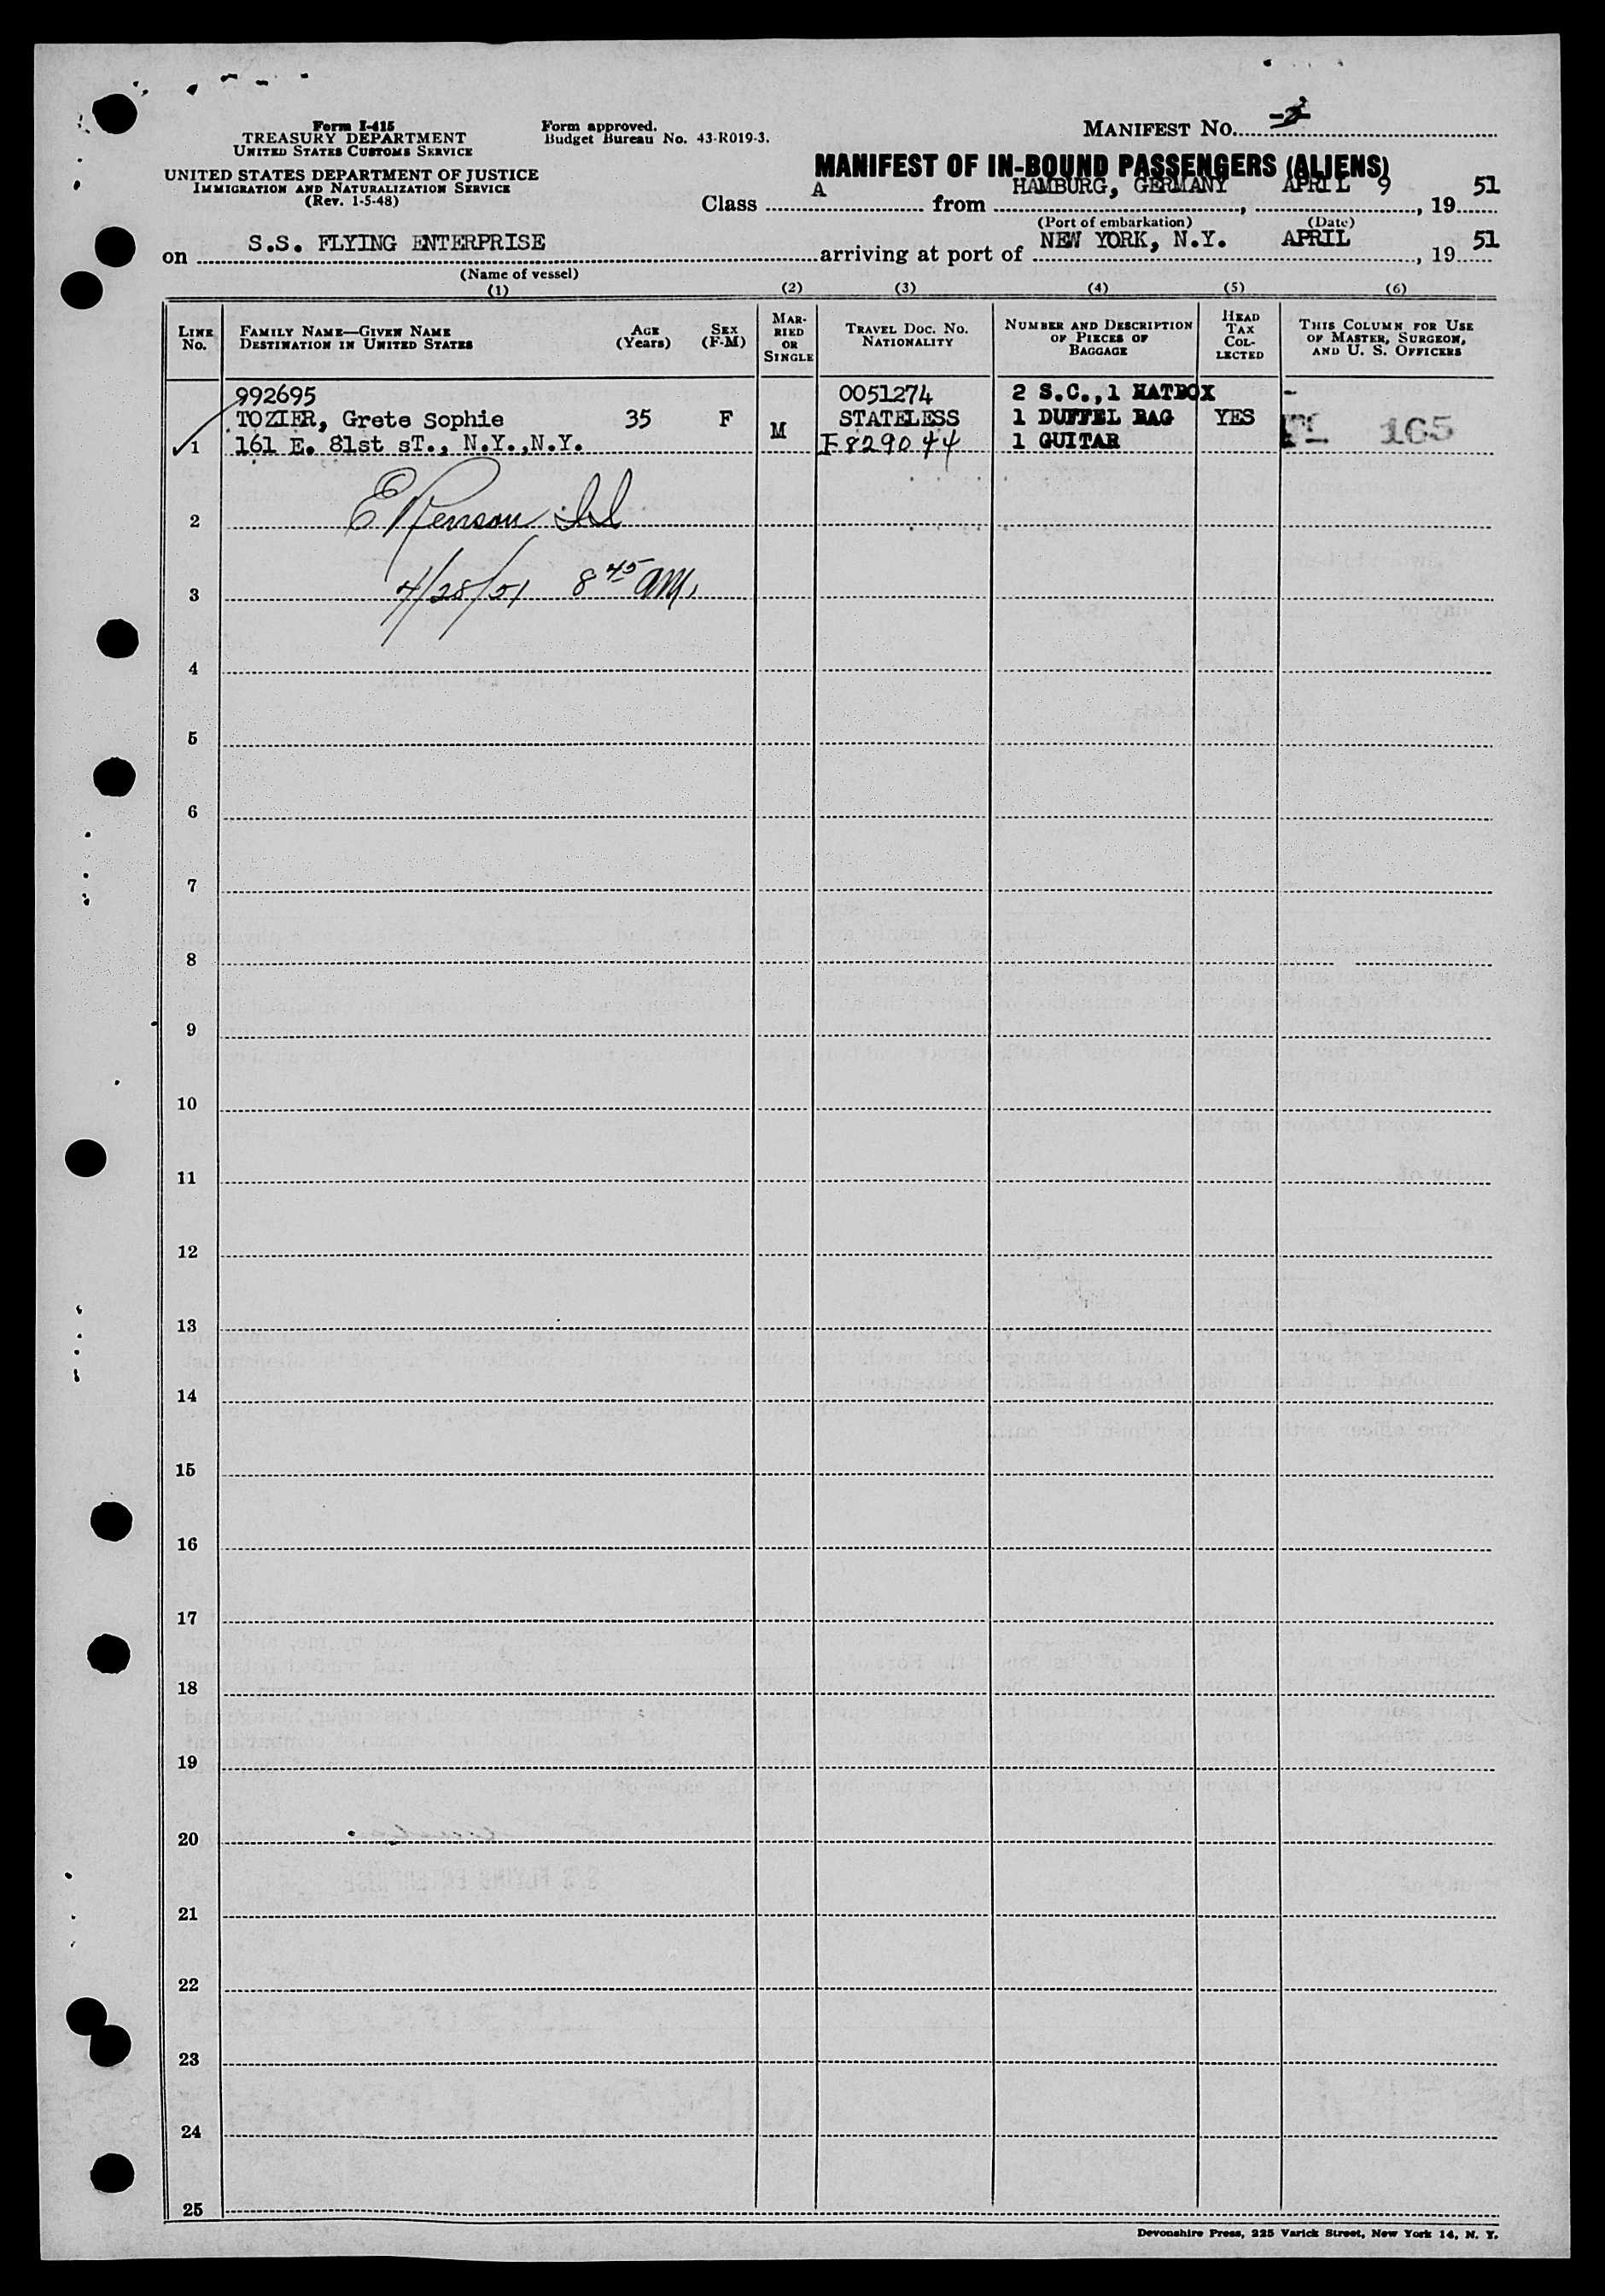 Form I-415
TREASURY DEPARTMENT
UNITED STATES CUSTOMS SERVICE
UNITED STATES DEPARTMENT OF JUSTICE
IMMIGRATION AND NATURALIZATION SERVICE
(Rev. 1-5-48)
Form approved.
Budget Bureau No. 43-R019-3.
MANIFEST NO.
MANIFEST OF IN-BOUND PASSENGERS (ALIENS)
Class A from HAMBURG, GERMANY, APRIL 9, 1951
(Port of embarkation) (Date)
on S.S. FLYING ENTERPRISE arriving at port of NEW YORK, N.Y. APRIL, 1951
(Name of vessel)
(1) (2) (3) (4) (5) (6)
LINE NO.
FAMILY NAME—GIVEN NAME
DESTINATION IN UNITED STATES
AGE (Years)
SEX (F-M)
MARRIED OR SINGLE
TRAVEL DOC. NO.
NATIONALITY
NUMBER AND DESCRIPTION OF PIECES OF BAGGAGE
HEAD TAX COLLECTED
THIS COLUMN FOR USE OF MASTER, SURGEON, AND U. S. OFFICERS
992695 0051274 2 S.C.,1 HATBOX -
TOZIER, Grete Sophie 35 F M STATELESS 1 DUFFEL BAG YES 165
1 161 E. 81st sT., N.Y.,N.Y. F829044 1 GUITAR
2
3 4/28/51 8 45 am,
4
5
6
7
8
9
10
11
12
13
14
15
16
17
18
19
20
21
22
23
24
25
Devonshire Press, 225 Varick Street, New York 14, N. Y.